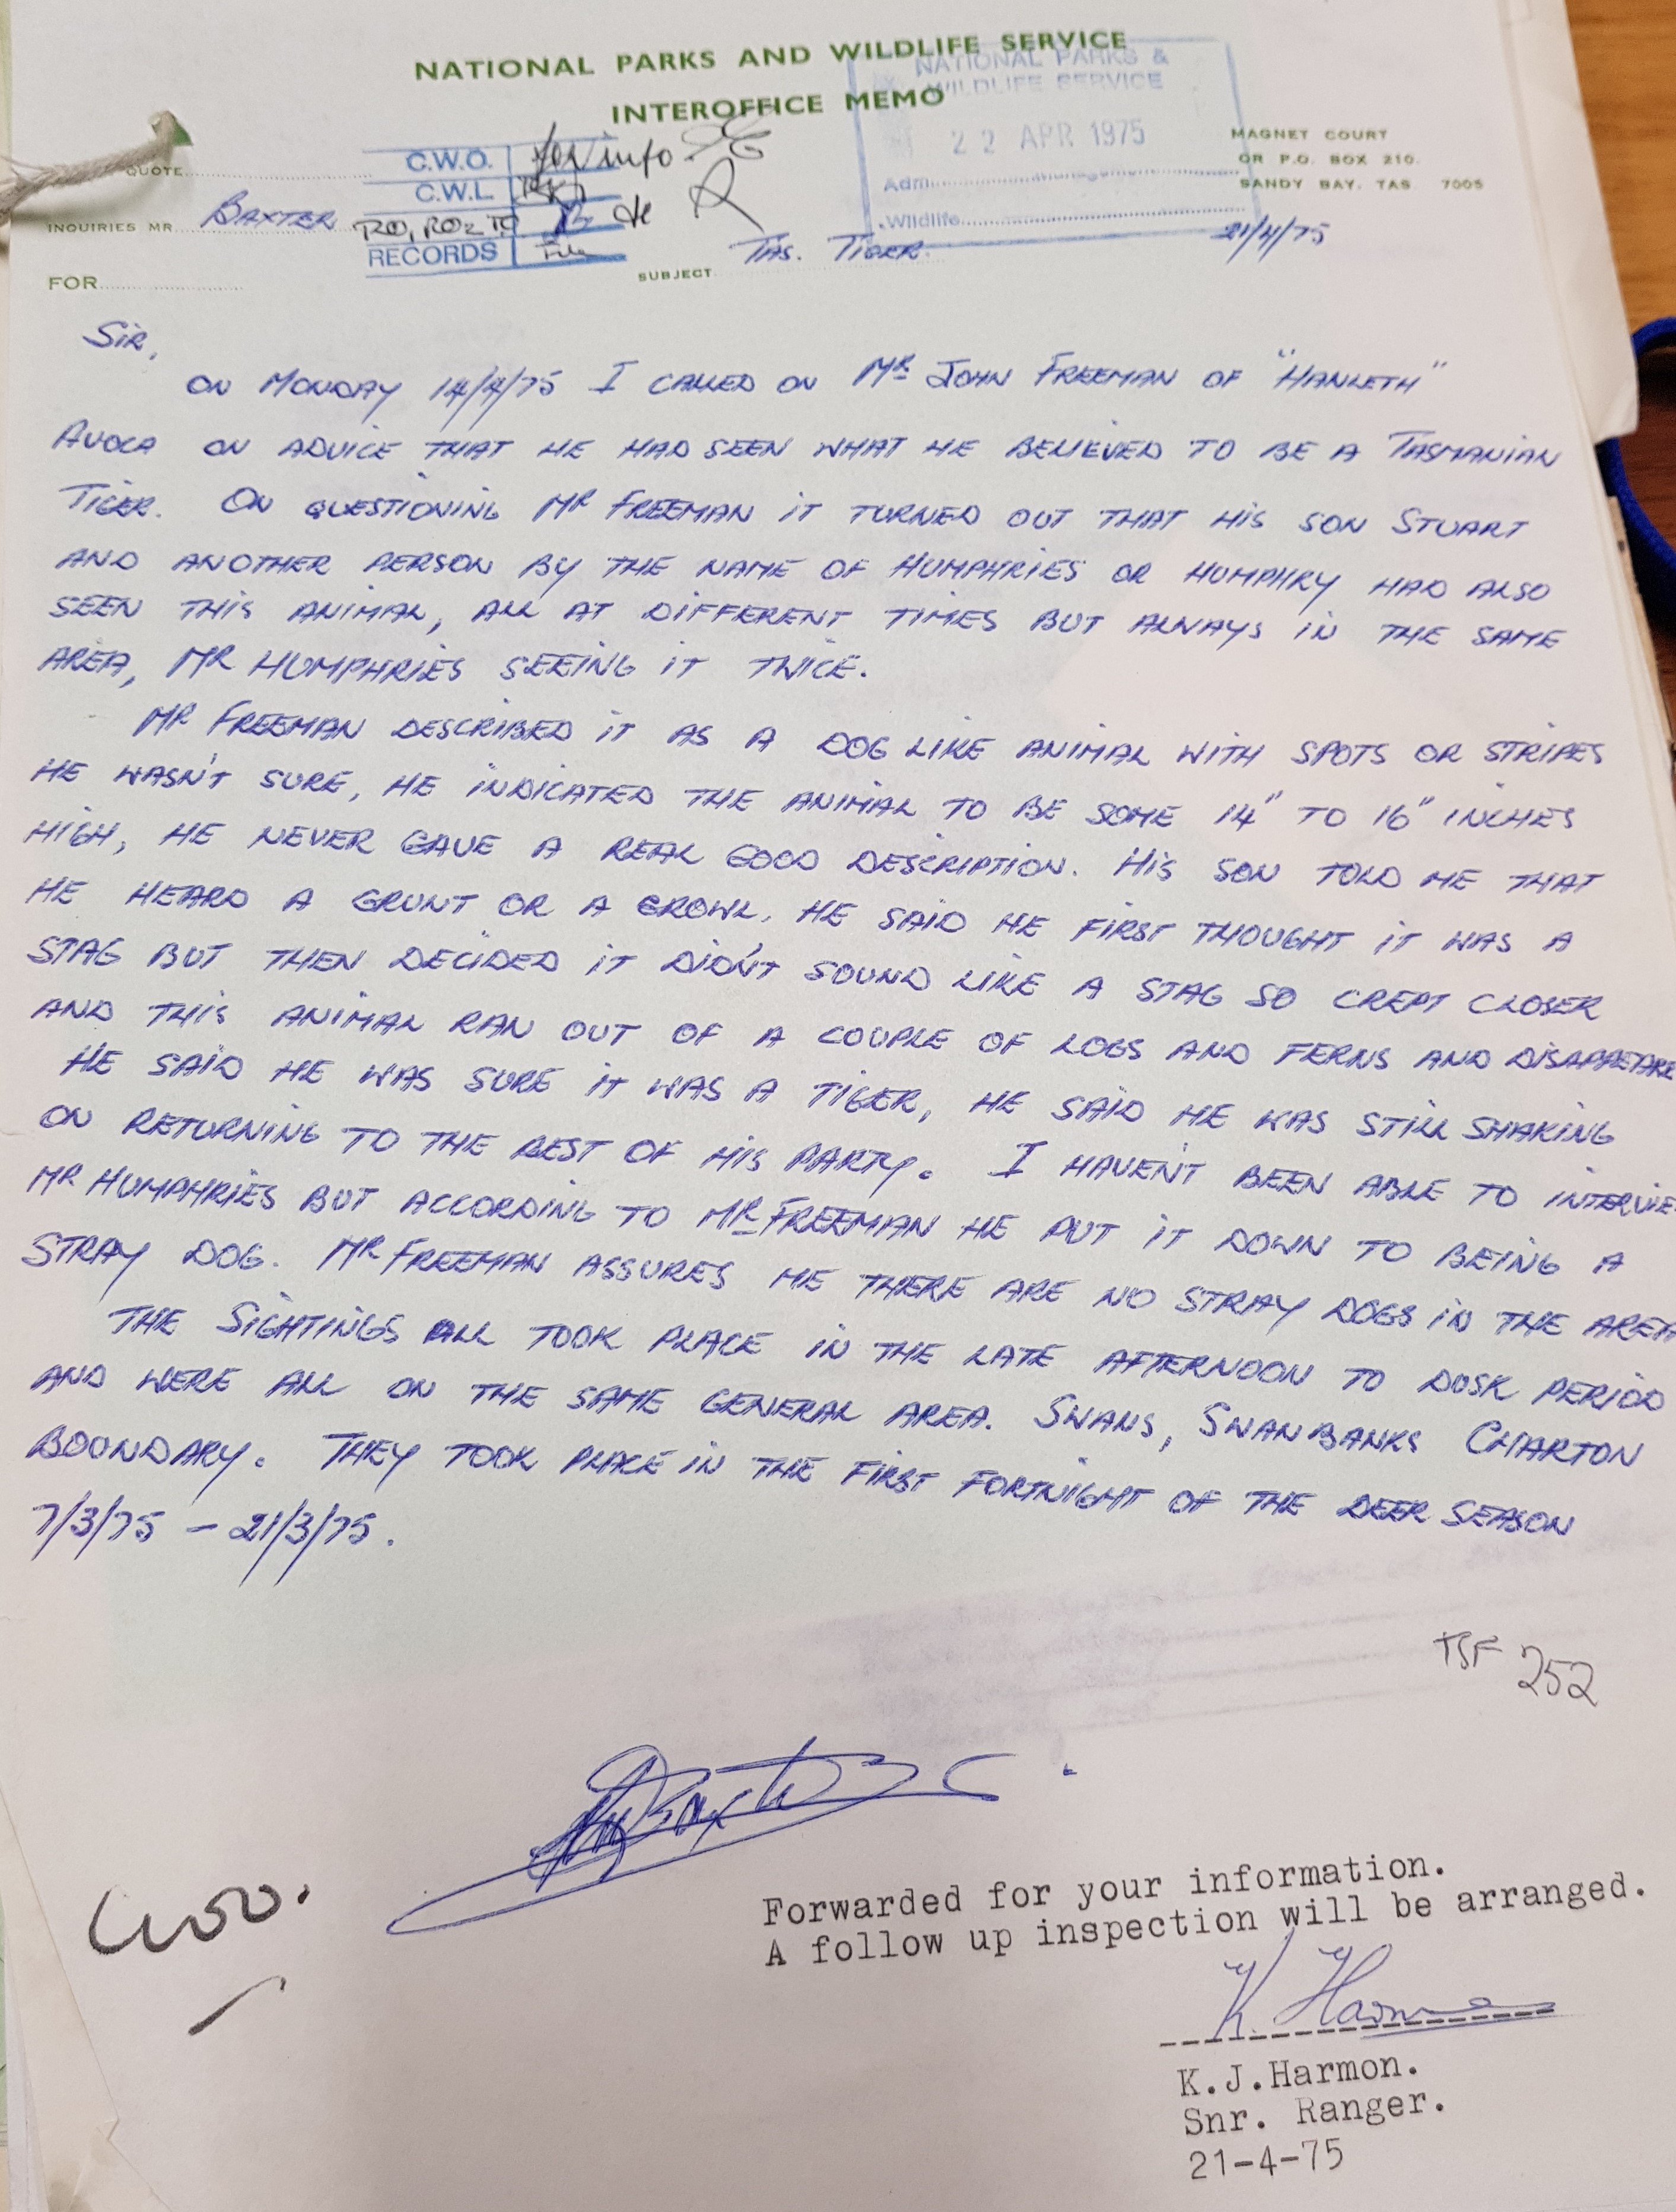 NATIONAL PARKS AND WILDLIFE SERVICE
INTEROFFICE MEMO
NATIONAL PARKS &
WILDLIFE SERVICE
22 APR 1975
Adm. Management
Wildlife
MAGNET COURT
OR P.O. BOX 210.
SANDY BAY, TAS. 7005
QUOTE
C.W.O. for info
C.W.L
RO, RO2 TO
RECORDS File
INQUIRIES MR BAXTER
FOR
SUBJECT TAS. TIGER.
21/4/75
SIR,
ON MONDAY 14/4/75 I CALLED ON MR JOHN FREEMAN OF "HANLETH"
AVOCA ON ADVICE THAT HE HAD SEEN WHAT HE BELIEVED TO BE A TASMANIAN
TIGER. ON QUESTIONING MR FREEMAN IT TURNED OUT THAT HIS SON STUART
AND ANOTHER PERSON BY THE NAME OF HUMPHRIES OR HUMPHRY HAD ALSO
SEEN THIS ANIMAL, ALL AT DIFFERENT TIMES BUT ALWAYS IN THE SAME
AREA, MR HUMPHRIES SEEING IT TWICE.
MR FREEMAN DESCRIBED IT AS A DOG LIKE ANIMAL WITH SPOTS OR STRIPES
HE WASN'T SURE, HE INDICATED THE ANIMAL TO BE SOME 14" TO 16" INCHES
HIGH, HE NEVER GAVE A REAL GOOD DESCRIPTION. HIS SON TOLD ME THAT
HE HEARD A GRUNT OR A GROWL, HE SAID HE FIRST THOUGHT IT WAS A
STAG BUT THEN DECIDED IT DIDN'T SOUND LIKE A STAG SO CREPT CLOSER
AND THIS ANIMAL RAN OUT OF A COUPLE OF LOGS AND FERNS AND DISAPPEARE
HE SAID HE WAS SURE IT WAS A TIGER, HE SAID HE WAS STILL SHAKING
ON RETURNING TO THE REST OF HIS PARTY. I HAVEN'T BEEN ABLE TO INTERVIE
MR HUMPHRIES BUT ACCORDING TO MR FREEMAN HE PUT IT DOWN TO BEING A
STRAY DOG. MR FREEMAN ASSURES ME THERE ARE NO STRAY DOGS IN THE AREA
THE SIGHTINGS ALL TOOK PLACE IN THE LATE AFTERNOON TO DUSK PERIOD
AND WERE ALL ON THE SAME GENERAL AREA. SWANS, SWANBANKS CHARTON
BOUNDARY. THEY TOOK PLACE IN THE FIRST FORTNIGHT OF THE DEER SEASON
7/3/75 – 21/3/75.
TSF 252
CWO.
Forwarded for your information.
A follow up inspection will be arranged.
K Harmon
K.J.Harmon.
Snr. Ranger.
21-4-75